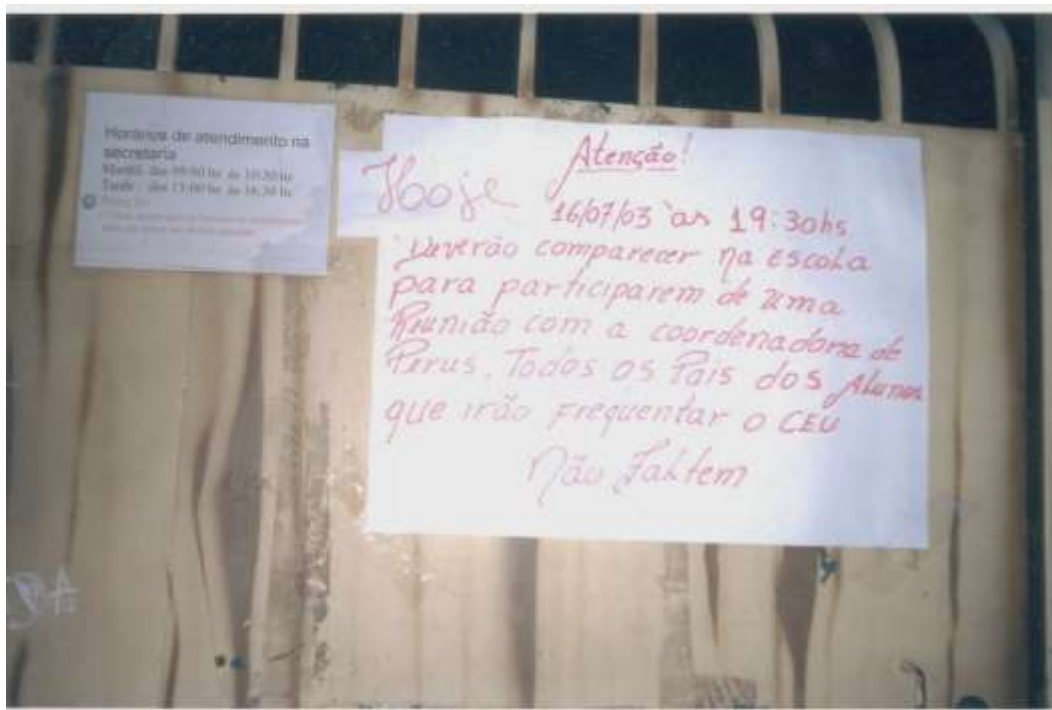 Horários de atendimento na
secretaria
Manhã das 09:00 hs às 10:30 hs
Tarde das 15:00 hs às 16:30 hs
Atenção!
Hooje
16/07/03 às 19:30hs
Deverão comparecer na escola
para participarem de uma
Reunião com a coordenadora de
Perus. Todos os Pais dos Alunos
que irão frequentar o CEU
Não Faltem